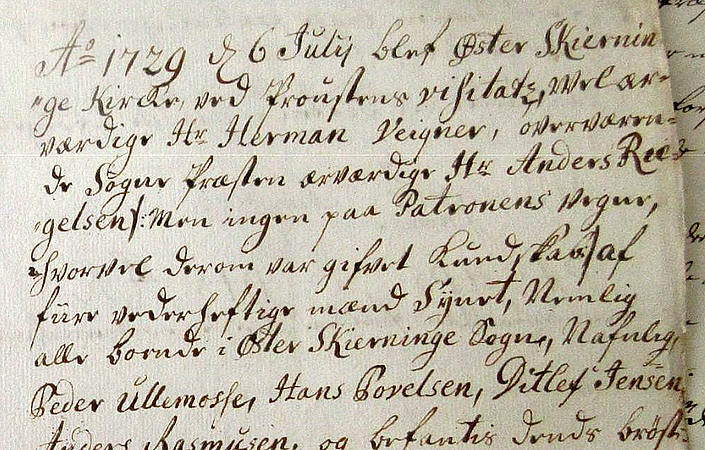 Ao 1729 d 6 Julij blef Øster Skiernin
ge Kircke, ved Proustens visitatz, Wel ær-
værdige Hr Herman Veigner, overværen-
de Sogne Præsten ærværdige Hr Anders Rie-
gelsen/: Men ingen paa Patronens vegne,
hvorvel derom var gifvet Kundskab/ af
fiire vederheftige mænd Synet, Nemlig
alle boende i Øster Skierninge Sogn, Nafnlig,
Peder Ullemosse, Hans Povelsen, Ditlef Jensen,
Anders Rasmusen, og befantis dends brøst-